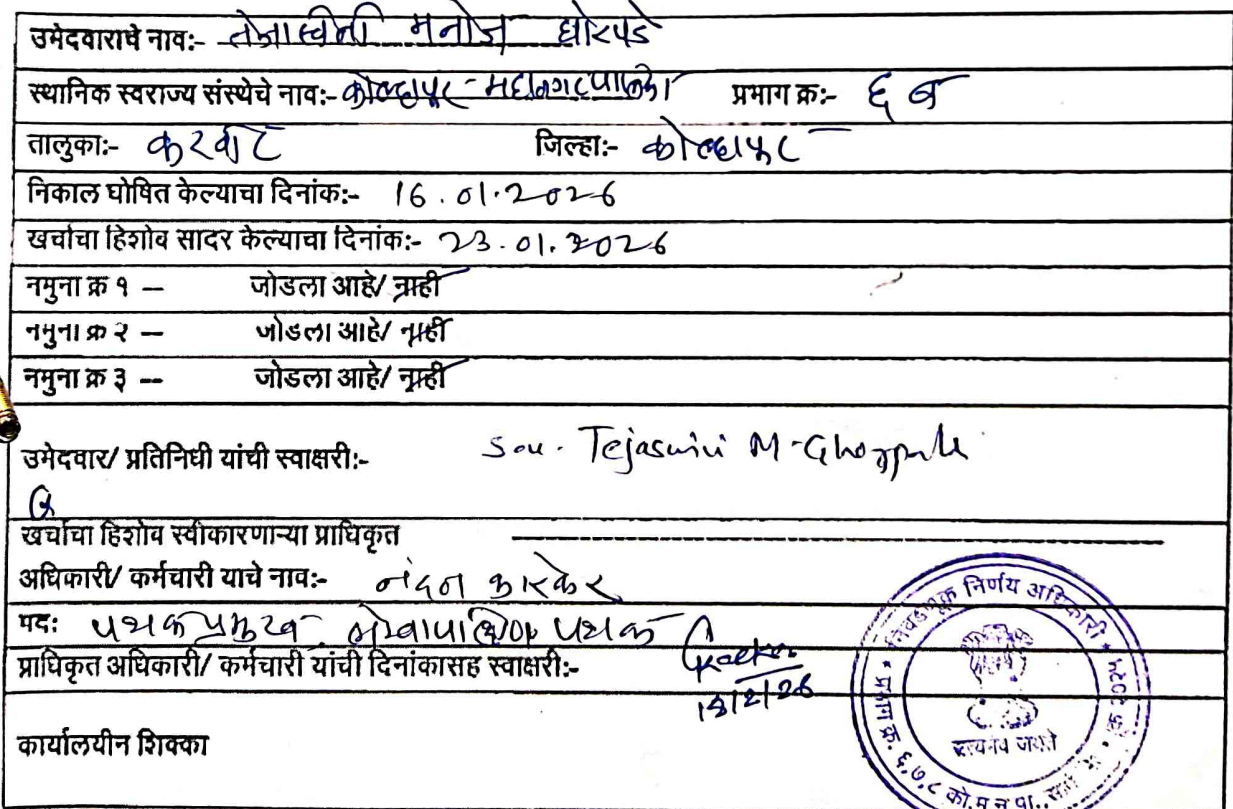 उमेदवाराचे नाव:- तेजास्वीनी मनोज घोरपडे
स्थानिक स्वराज्य संस्थेचे नाव:- कोल्हापूर - महानगरपालिका प्रभाग क्र:- ६ ब
तालुका:- करवीर जिल्हा:- कोल्हापूर
निकाल घोषित केल्याचा दिनांक:- 16.01.2026
खर्चाचा हिशोब सादर केल्याचा दिनांक:- 23.01.2026
नमुना क्र १ – जोडला आहे/ नाही
नमुना क्र २ – जोडला आहे/ नाही
नमुना क्र ३ – जोडला आहे/ नाही
उमेदवार/ प्रतिनिधी यांची स्वाक्षरी:- Sou. Tejaswini M-Ghorpade
खर्चाचा हिशोब स्वीकारणाऱ्या प्राधिकृत
अधिकारी/ कर्मचारी याचे नाव:- नंदन कारकेर
पद: पथक प्रमुख पथक
प्राधिकृत अधिकारी/ कर्मचारी यांची दिनांकासह स्वाक्षरी:-
कार्यालयीन शिक्का
निवडणूक निर्णय अधिकारी
सत्यमेव जयते
प्रभाग क्र. ६,७,८ को.म.न.पा.